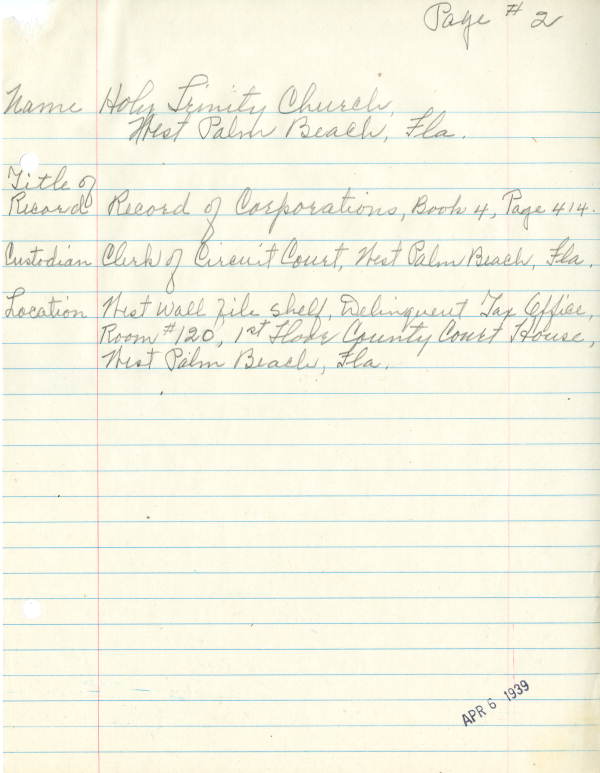 Page #2
Name Holy Trinity Church,
West Palm Beach, Fla.
Title of
Record Record of Corporations, Book 4, Page 414.
Custodian Clerk of Circuit Court, West Palm Beach, Fla.
Location West wall file shelf, Delinquent Tax Office,
Room #120, 1st Floor County Court House,
West Palm Beach, Fla.
APR 6 1939